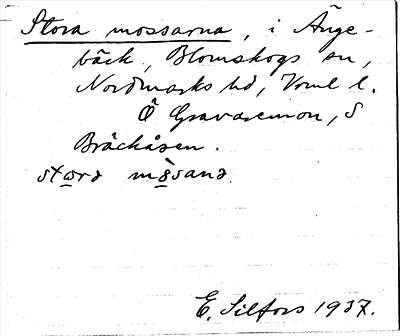 Stora mossarna, i Änge-
bäck, Blomskogs sn,
Nordmarks hd, Vrml l.
Ö Gravaremon, S
Bräckåsen.
E. Silfors 1937.